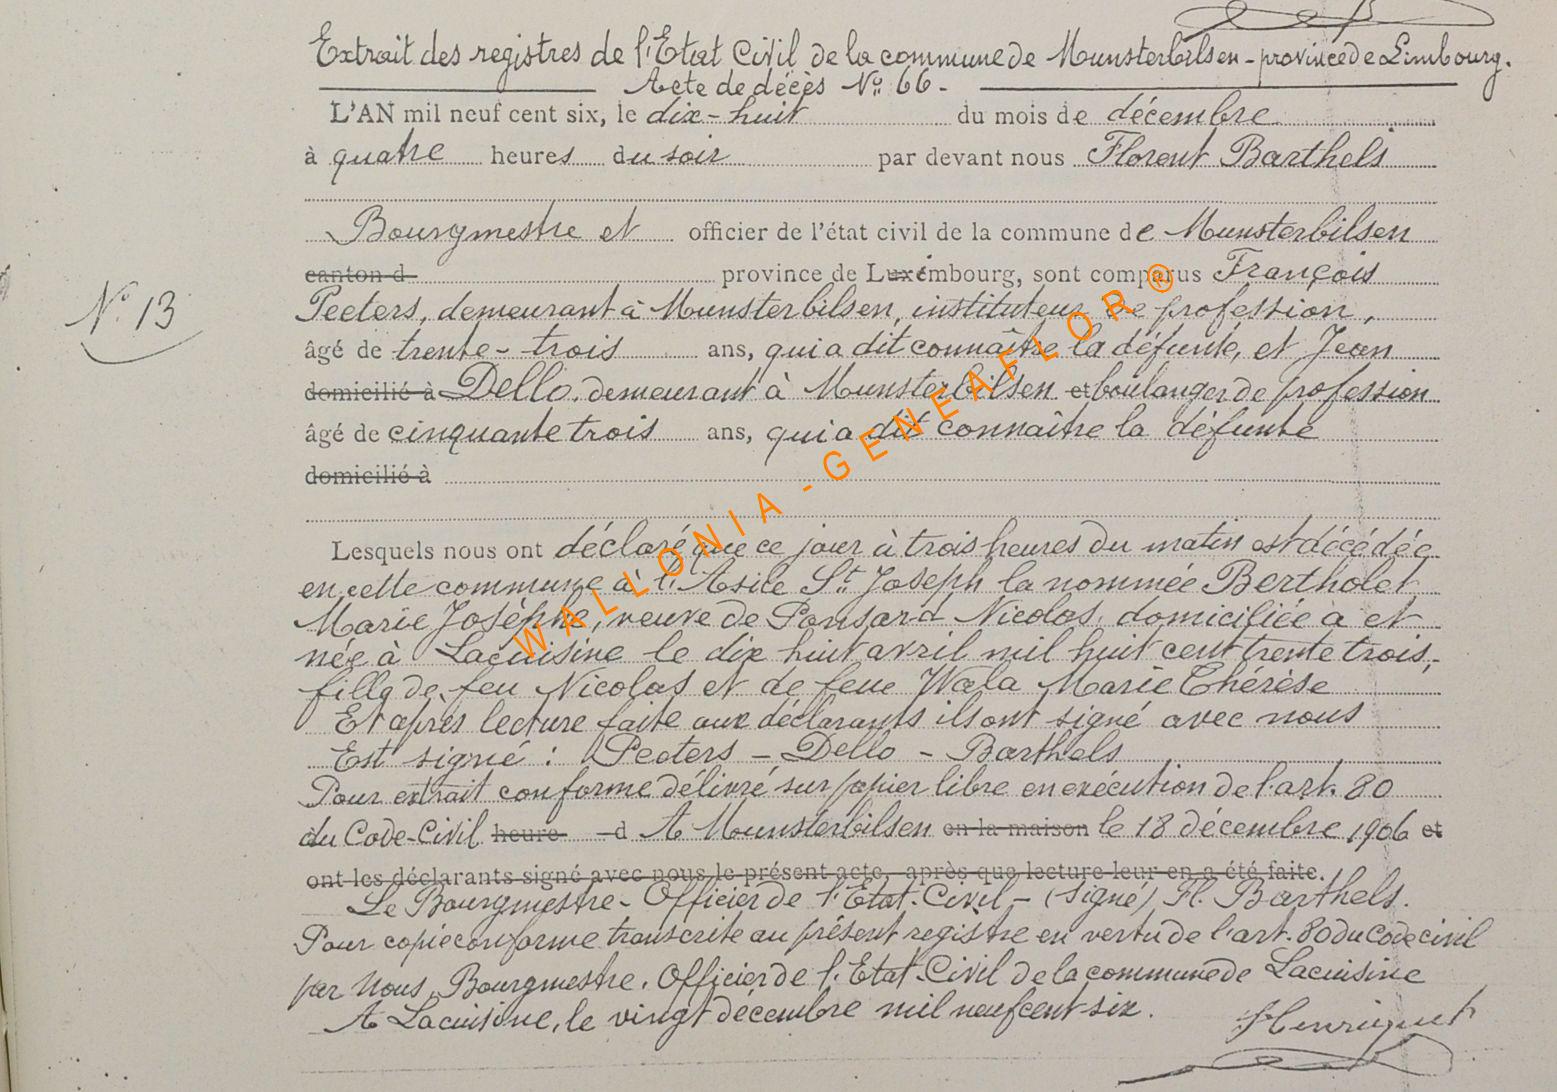 Extrait des registres de l'Etat Civil de la commune de Munsterbilsen - province de Limbourg.
Acte de décès No 66 -
L'AN mil neuf cent six, le dix-huit du mois de décembre
à quatre heures du soir par devant nous Florent Barthels
Bourgmestre et officier de l'état civil de la commune de Munsterbilsen
canton d province de Luximbourg, sont comparus François
No 13
Peeters, demeurant à Munsterbilsen, instituteur de profession,
âgé de trente-trois ans, qui a dit connaître la défunte, et Jean
domicilié à Dello, demeurant à Munsterbilsen et boulanger de profession
âgé de cinquante trois ans, qui a dit connaître la défunte
domicilié à
Lesquels nous ont déclaré que ce jour à trois heures du matin est décédée
en cette commune à l'Asile St Joseph la nommée Bertholet
Marie Josèphe, veuve de Ponsard Nicolas, domiciliée à et
née à Lacuisine le dix huit avril mil huit cent trente trois,
fille de feu Nicolas et de feue Wala Marie Thérèse
Et après lecture faite aux déclarants ils ont signé avec nous
Est signé : Peeters - Dello - Barthels
Pour extrait conforme délivré sur papier libre en exécution de l'art. 80
du Code-Civil heure d A Munsterbilsen en la maison le 18 décembre 1906 et
ont les déclarants signé avec nous le présent acte, après que lecture leur en a été faite.
Le Bourgmestre - Officier de l'Etat-Civil - (signé) Fl. Barthels.
Pour copie conforme transcrite au présent registre en vertu de l'art. 80 du Code civil
par Nous, Bourgmestre, Officier de l'Etat-Civil de la commune de Lacuisine
A Lacuisine, le vingt décembre mil neuf cent six.
Henriquet
WALLONIA - GENEAFLOR ®